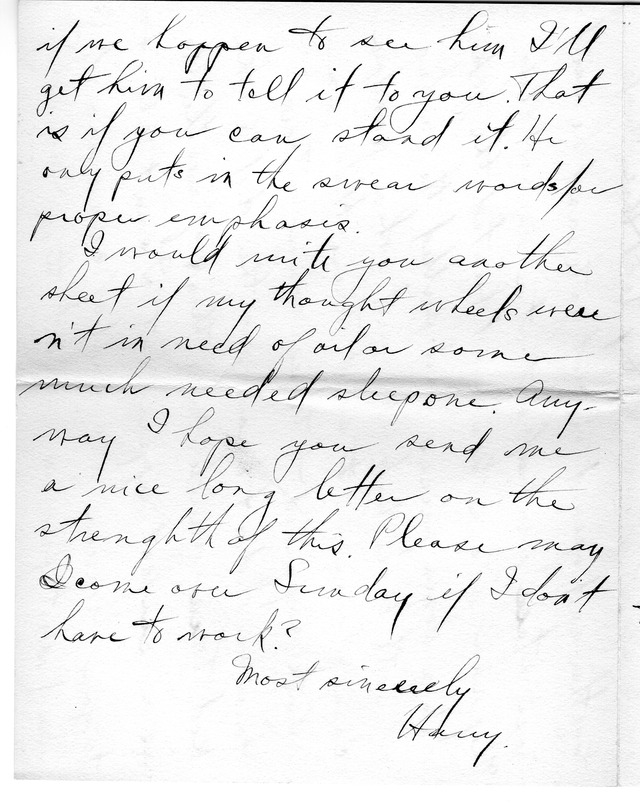 if we happen to see him I'll
get him to tell it to you. That
is if you can stand it. He
only puts in the swear words for
proper emphasis.
I would write you another
sheet if my thought wheels were
n't in need of oil or some
much needed sleepone. Any-
way I hope you send me
a nice long letter on the
strenghth of this. Please may
I come over Sunday if I don't
have to work?
Most sincerely
Harry.